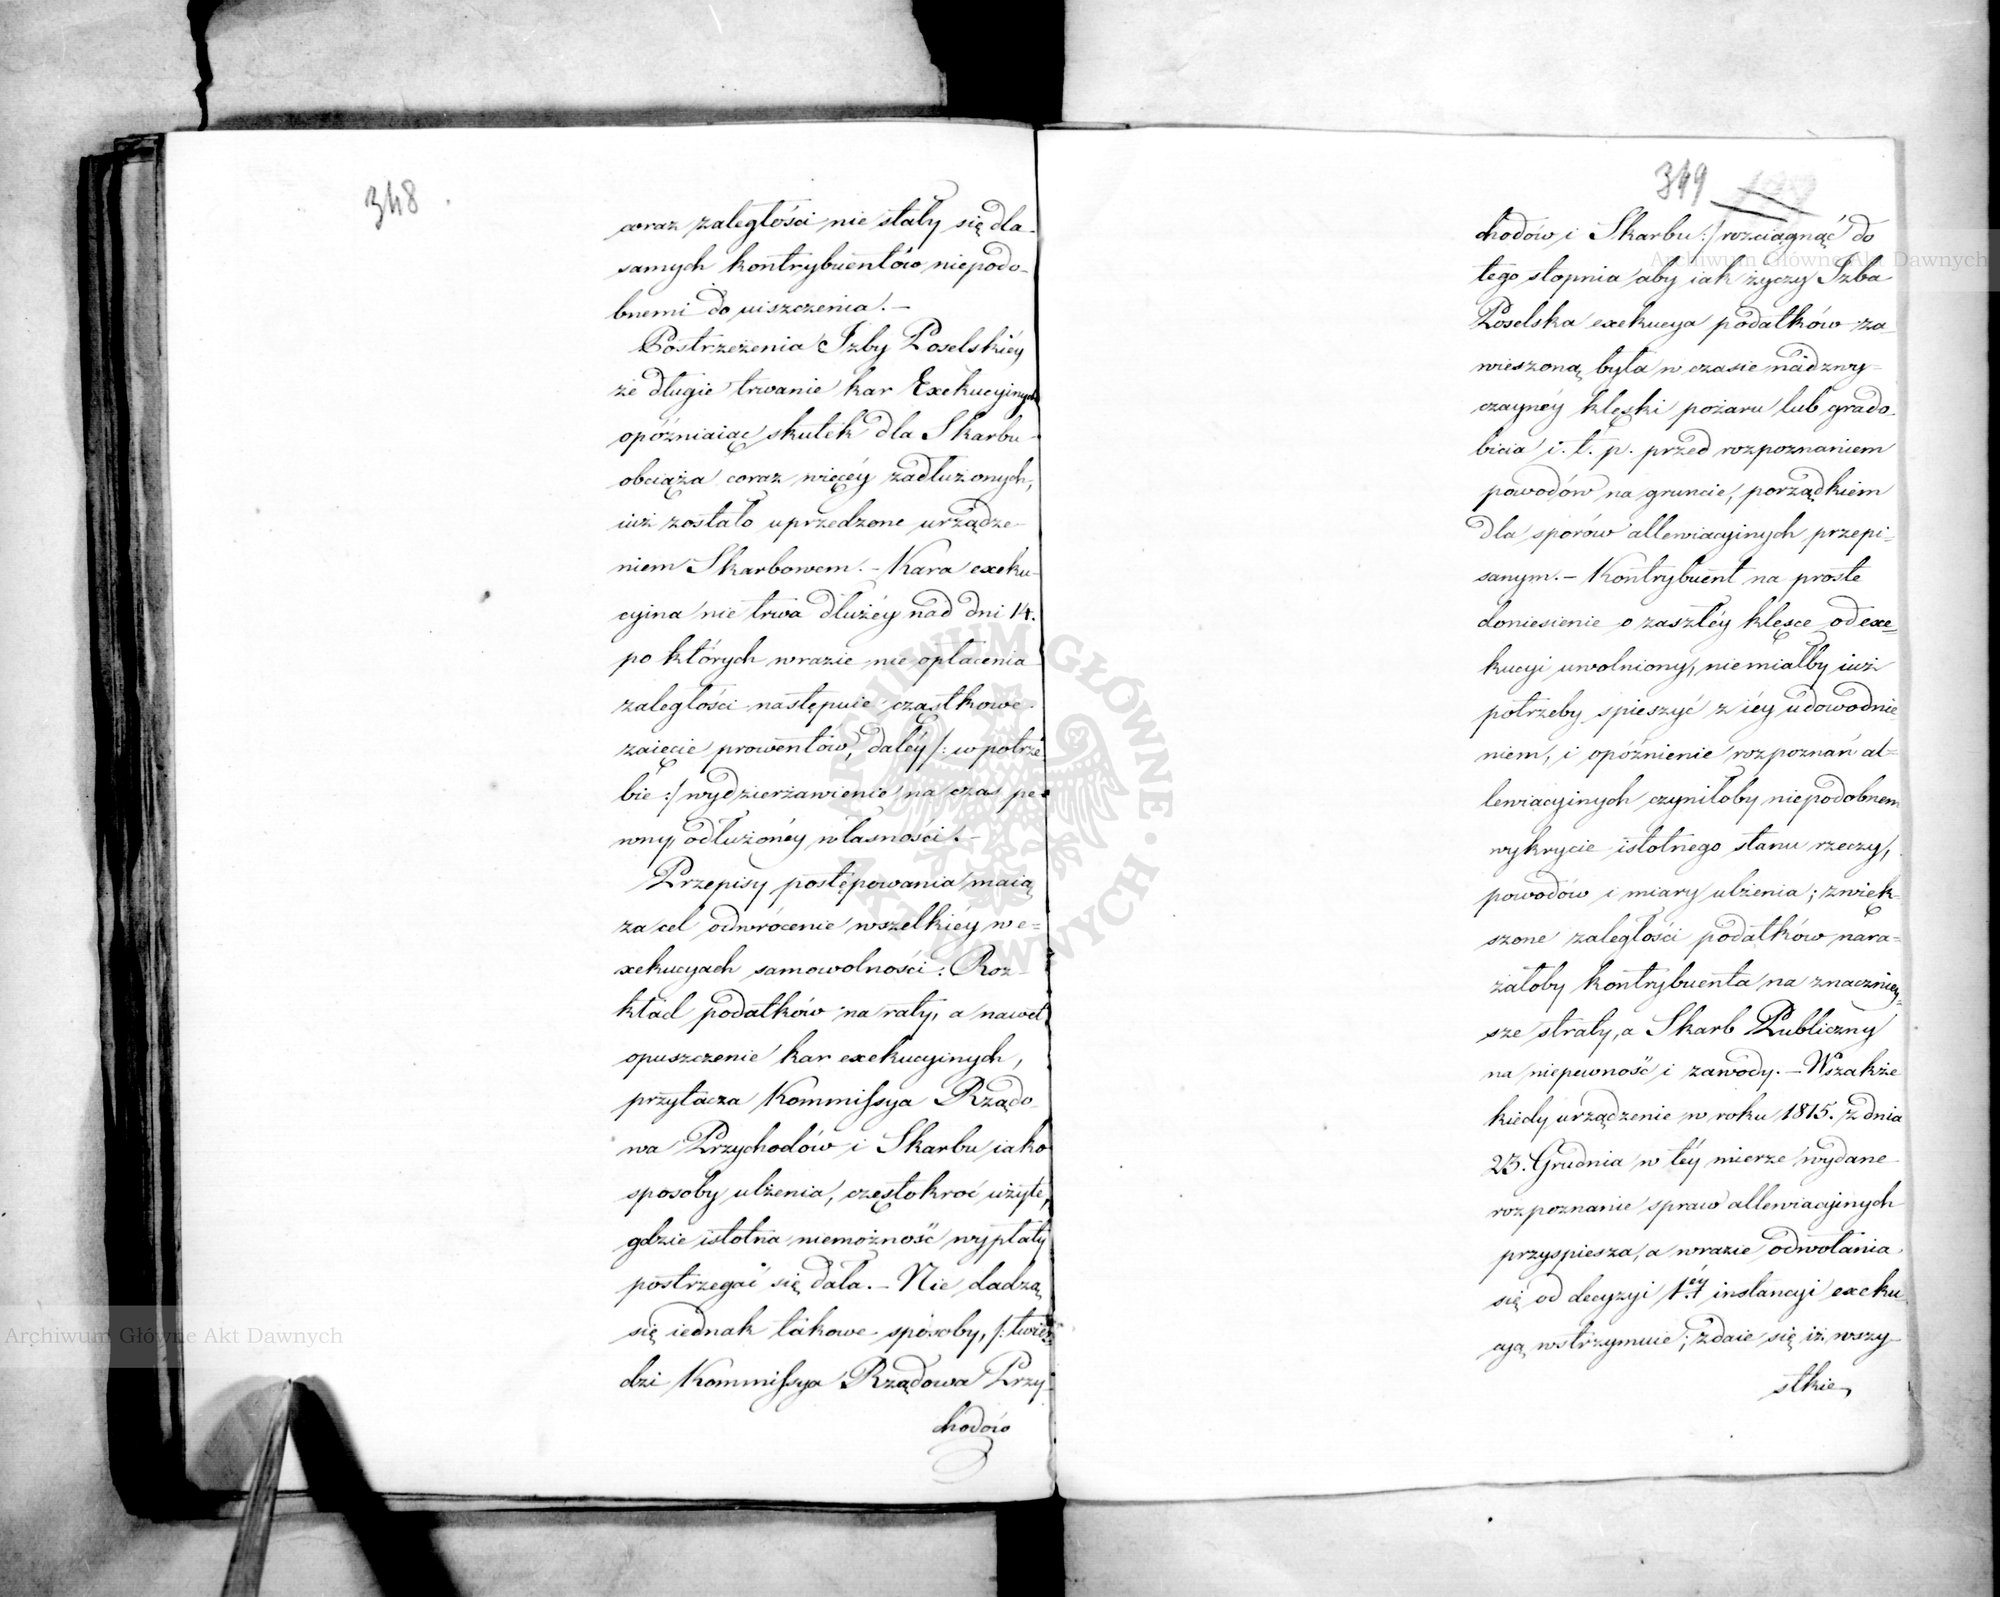 348.
coraz zaległości nie stały się dla
samych kontrybuentów niepodo-
bnemi do uiszczenia.—
Postrzeżenia Izby Poselskiéy
że długie trwanie kar Exekucyinych
opóźniaiąc skutek dla Skarbu
obciąża coraz więcéy zadłużonych,
iuż zostało uprzedzone urządze-
niem Skarbowem.— Kara exeku-
cyina nie trwa dłużéy nad dni 14.
po których wrazie nie opłacenia
zaległości następuie cząstkowe
zaięcie prowentów, daléy /: w potrze
bie :/ wydzierżawienie na czas pe-
wny odłużonéy własności.—
Przepisy postępowania maią
za cel odwrócenie wszelkiéy w e-
xekucyach samowolności. Roz-
kład podatków na raty, a nawet
opuszczenie kar exekucyinych,
przytacza Kommissya Rządo-
wa Przychodów i Skarbu iako
sposoby ulżenia, częstokroć użyte,
gdzie istotna niemożność wypłaty
postrzegać się dała.— Nie dadzą
się iednak takowe sposoby, /: twier
dzi Kommissya Rządowa Przy-
chodów
349
chodów i Skarbu :/ rozciągnąć do
tego stopnia aby iak życzy Izba
Poselska exekucya podatków za-
wieszoną była w czasie nadzwy-
czaynéy klęski pożaru lub grado-
bicia i. t. p. przed rozpoznaniem
powodów na gruncie, porządkiem
dla sporów allewiacyinych przepi-
sanym.— Kontrybuent na proste
doniesienie o zaszłéy klęsce od exe-
kucyi uwolniony, niemiałby iuż
potrzeby spieszyć z iéy udowodnie
niem, i opóźnienie rozpoznań al-
lewiacyinych czyniłoby niepodobnem
wykrycie istotnego stanu rzeczy,
powodów i miary ulżenia; zwięk-
szone zaległości podatków nara-
żałoby kontrybuenta na znaczniey-
sze straty, a Skarb Publiczny
na niepewność i zawody.— Wszakże
kiedy urządzenie w roku 1815. z dnia
23. Grudnia w téy mierze wydane
rozpoznanie spraw allewiacyinych
przyspiesza, a wrazie odwołania
się od decyzyi 1éy instancyi exeku
cyą wstrzymuie; zdaie się iż wszy-
stkie
Archiwum Główne Akt Dawnych
ARCHIWUM GŁÓWNE AKT DAWNYCH
Archiwum Główne Akt Dawnych